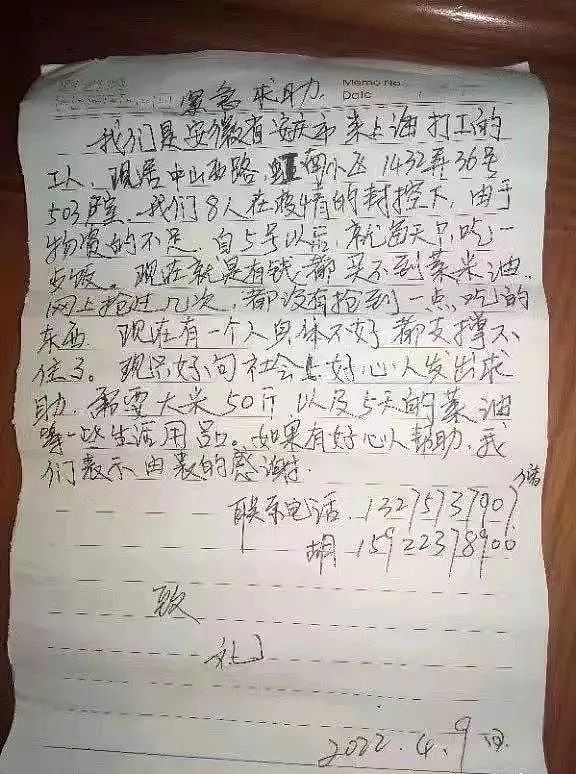 Memo No.
Date
紧急求助
我们是安徽省安庆市来上海打工的
工人,现居中山西路虹南小区1432弄36号
503室,我们8人在疫情的封控下,由于
物资的不足,自5号以后,就每天只吃一
步饭。现在就是有钱都买不到菜米油,
网上抢过几次,都没有抢到一点吃的
东西,现在有一个人身体不好都支撑不
住了。现只好向社会上好心人发出求
助,需要大米50斤,以及5天的菜油
等一些生活用品。如果有好心人帮助,我
们表示由衷的感谢.
联系电话.13275737907
胡 15922378900
致
礼
2022.4.9日.